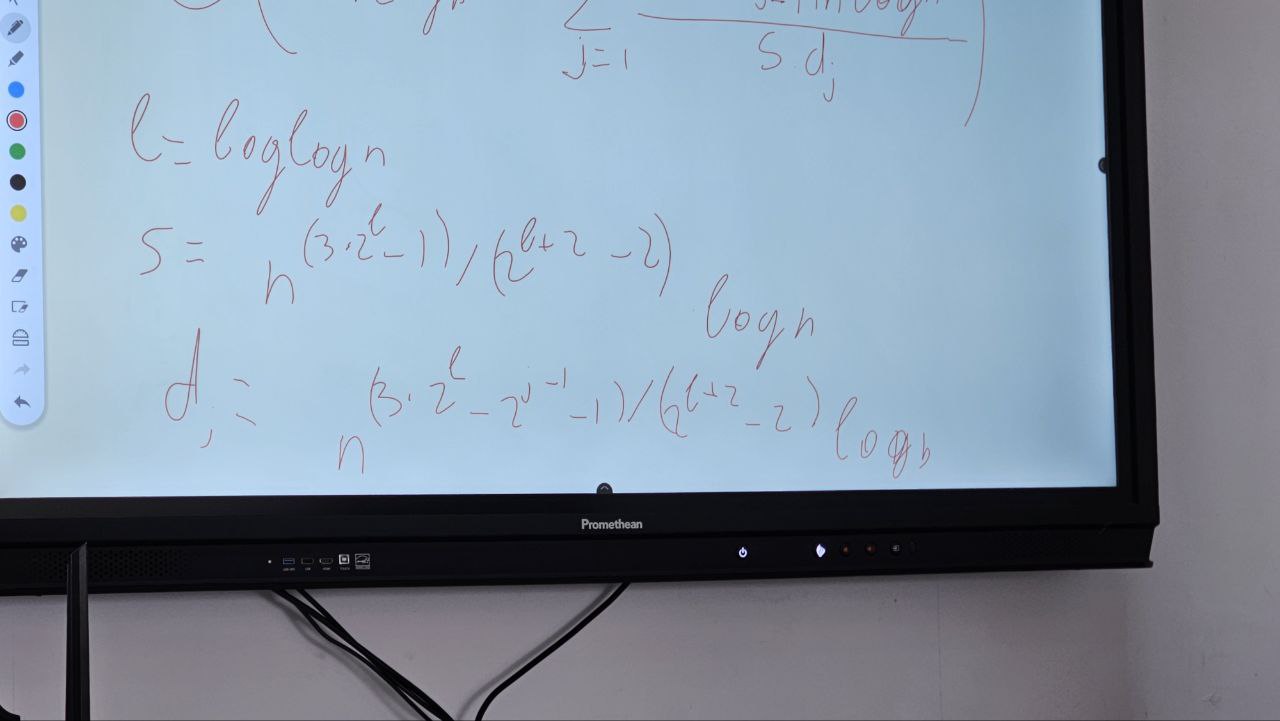 j=1 S d_j
l = loglog n
S = n^{(3·2^l - 1)/(2^{l+2} - 2)} log n
d_j = n^{(3·2^l - 2^{j-1} - 1)/(2^{l+2} - 2)} log n
Promethean